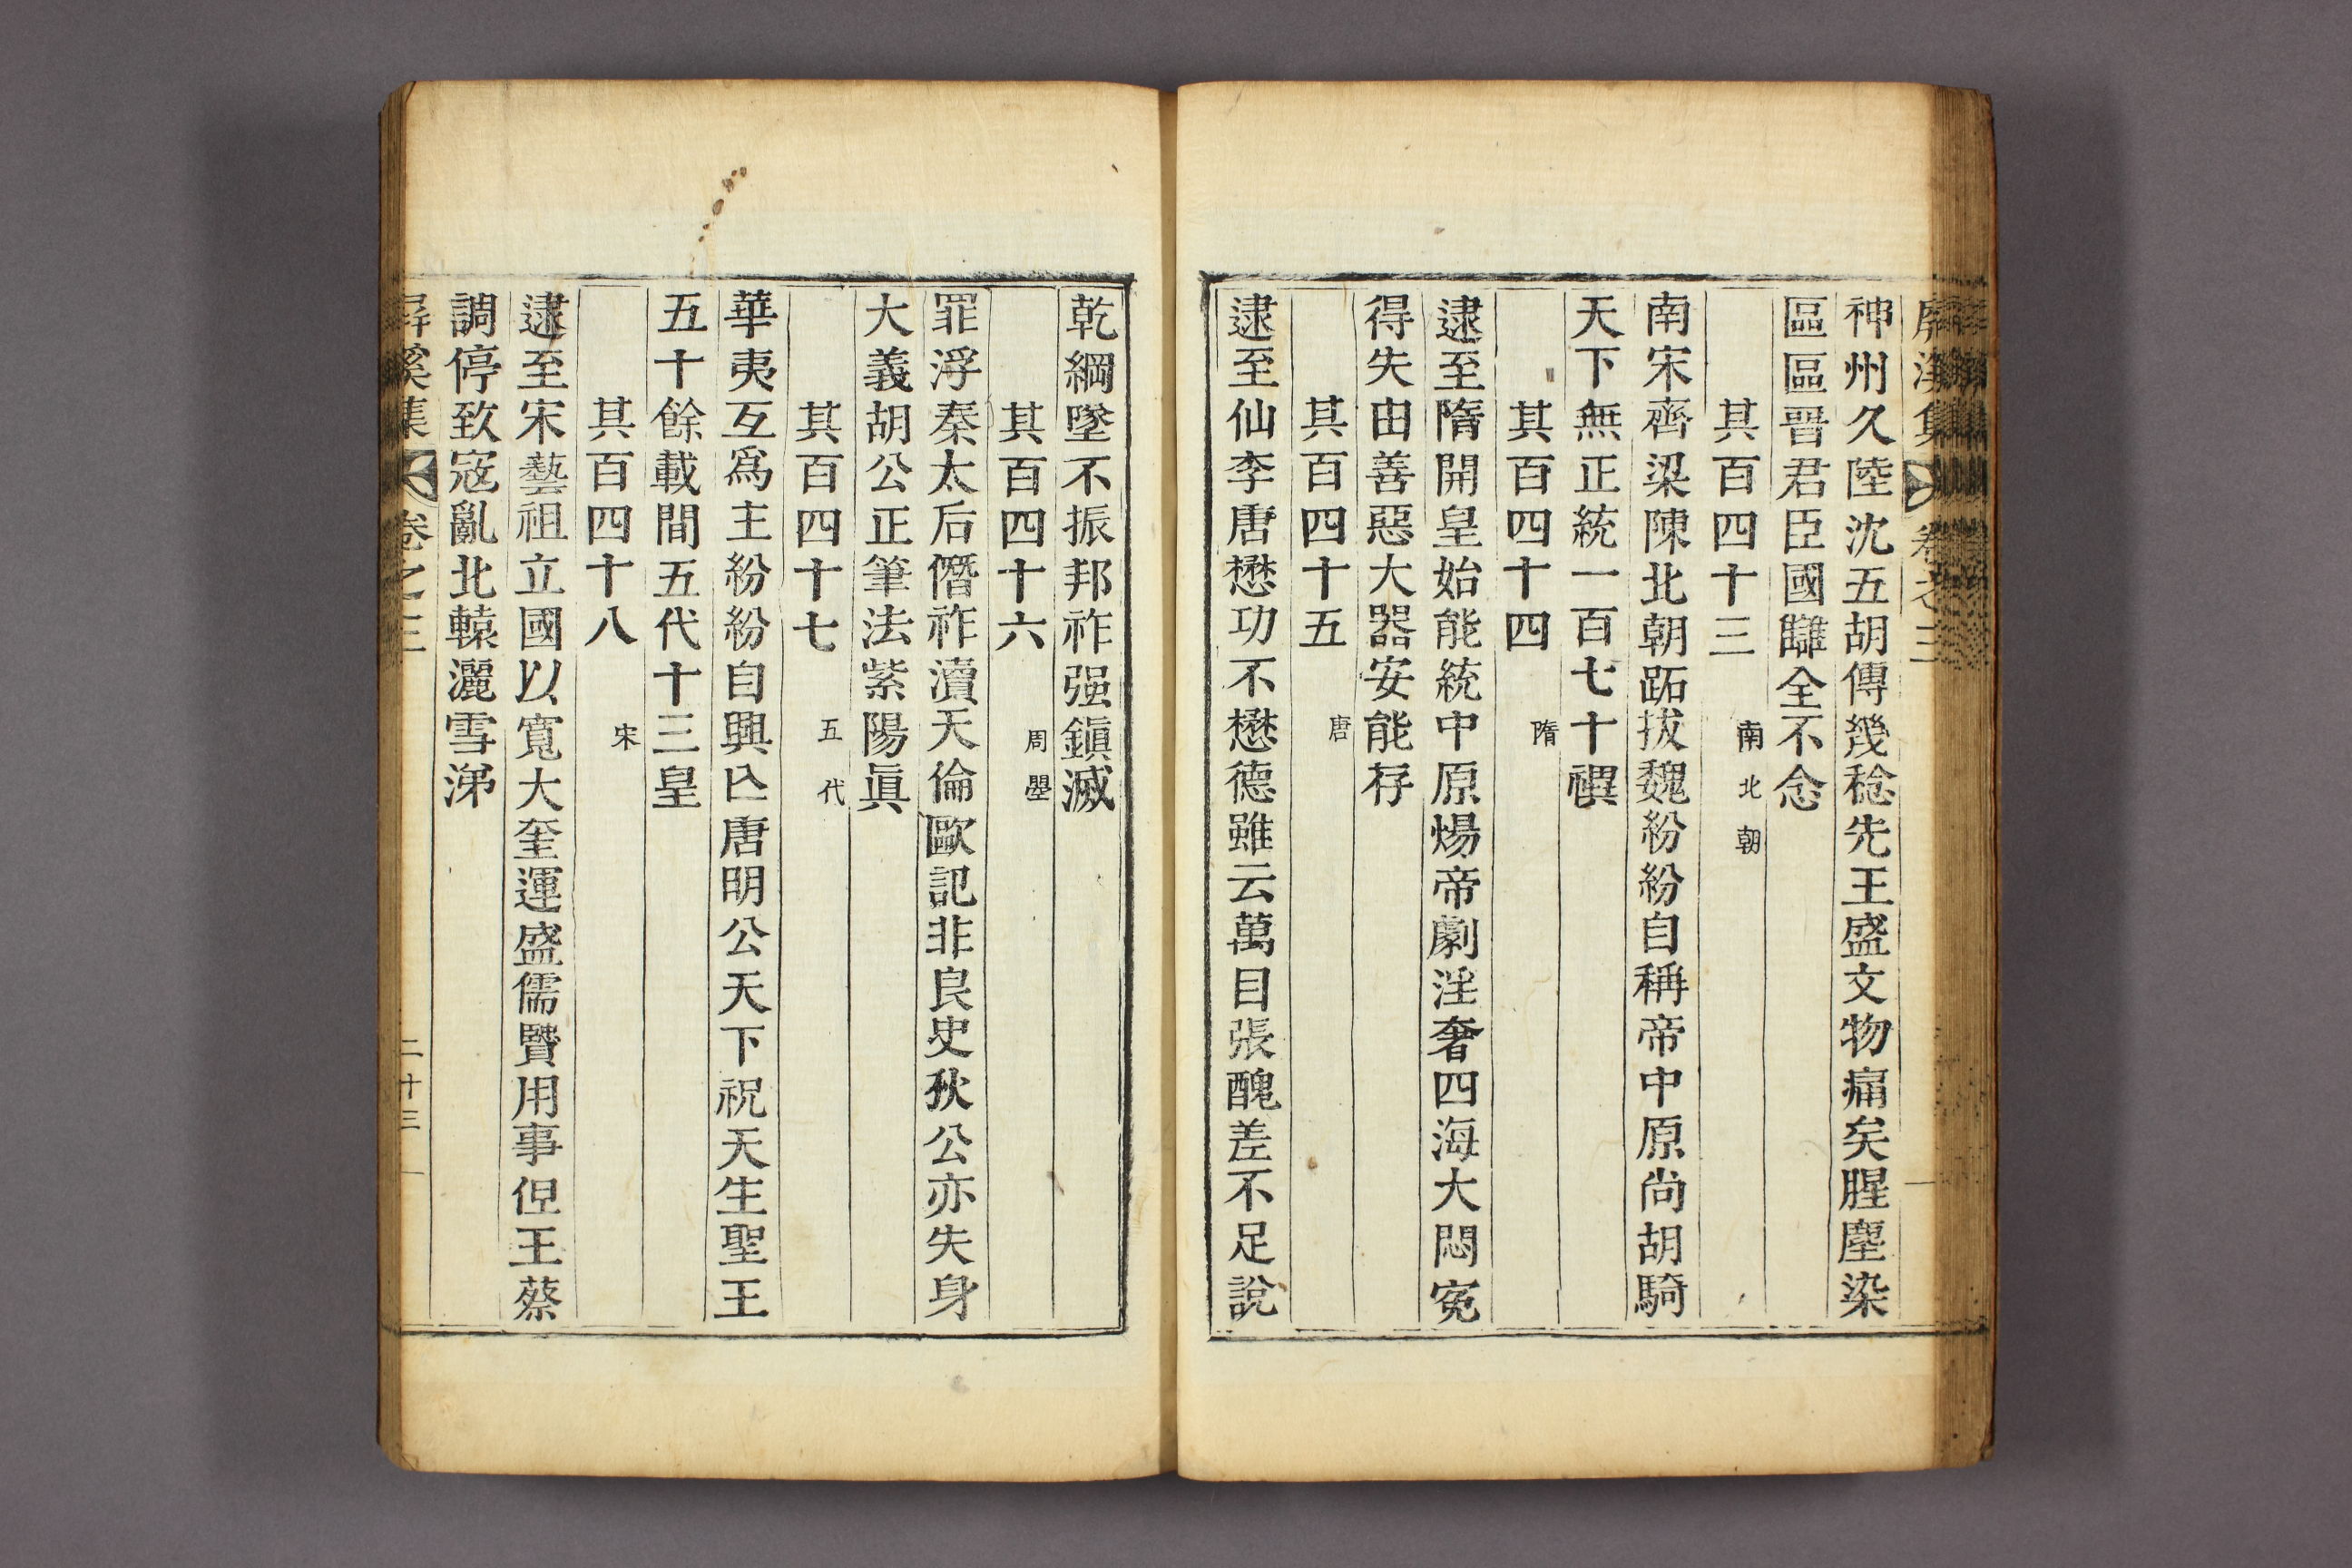 屏溪集 卷之三
神州久陸沈五胡傳幾稔先王盛文物痛矣腥塵染
區區晉君臣國讎全不念
其百四十三 南北朝
南宋齊梁陳北朝跖拔魏紛紛自稱帝中原尙胡騎
天下無正統一百七十禩
其百四十四 隋
逮至隋開皇始能統中原煬帝劇淫奢四海大悶寃
得失由善惡大器安能存
其百四十五 唐
逮至仙李唐懋功不懋德雖云萬目張醜差不足說
乾綱墜不振邦祚强鎭滅
其百四十六 周曌
罪浮秦太后僭祚瀆天倫歐記非良史狄公亦失身
大義胡公正筆法紫陽眞
其百四十七 五代
華夷互爲主紛紛自興亾唐明公天下祝天生聖王
五十餘載間五代十三皇
其百四十八 宋
逮至宋藝祖立國以寬大奎運盛儒賢用事但王蔡
調停致寇亂北轅灑雪涕
屏溪集 卷之三 二十三